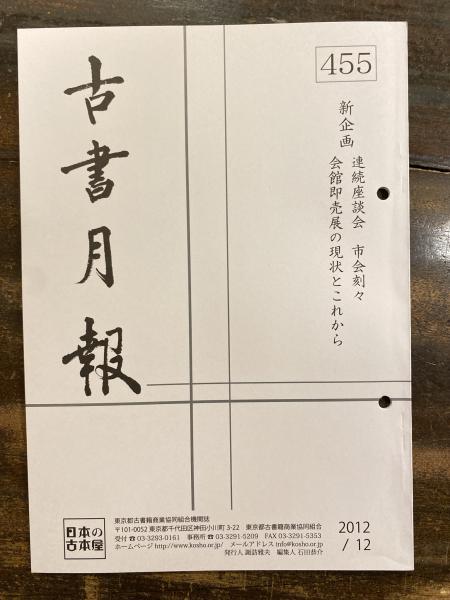 455
新企画 連続座談会 市会刻々
会館即売展の現状とこれから
古書月報
日本の
古本屋
東京都古書籍商業協同組合機関誌
〒101-0052 東京都千代田区神田小川町 3-22 東京都古書籍商業協同組合
受付 ☎ 03-3293-0161 事務所 ☎ 03-3291-5209 FAX 03-3291-5353
ホームページ http://www.kosho.or.jp/ メールアドレス info@kosho.or.jp
発行人 諏訪雅夫 編集人 石田恭介
2012
/ 12